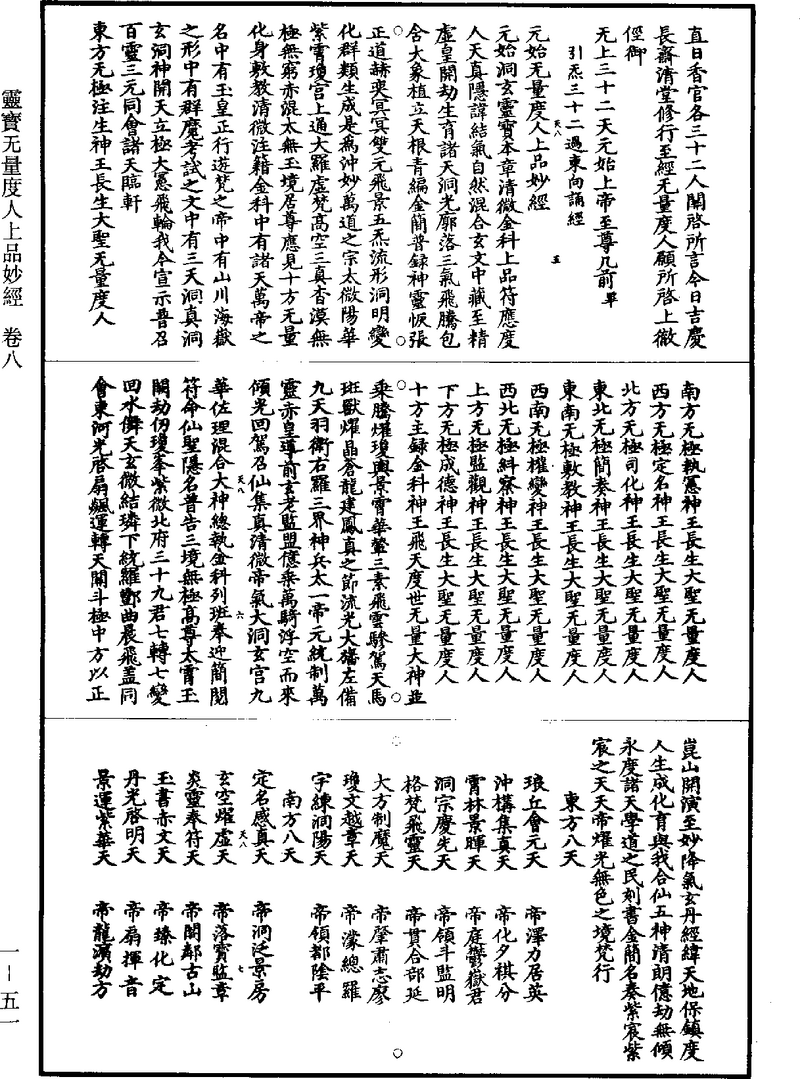 靈寶无量度人上品妙經 卷八
直日香官各三十二人關啓所言今日吉慶
長齋清堂修行至經无量度人願所啓上徹
徑御
无上三十二天元始上帝至尊几前畢
引炁三十二過東向誦經
天八 五
元始无量度人上品妙經
元始洞玄靈寶本章清微金科上品符應度
人天真隱諱結氣自然混合玄文中藏至精
虛皇開劫生育諸天洞光廓落三氣飛騰包
含大象植立天根青編金簡普録神靈恢張
正道赫奕冥冥雙元飛景五炁流形洞明變
化群類生成是爲沖妙萬道之宗太微陽華
紫霄瓊宮上通大羅虛梵髙空三真杳漠無
極無窮赤混太無玉境居尊應見十方无量
化身敷教清微注籍金科中有諸天萬帝之
名中有玉皇正行遊梵之帝中有山川海嶽
之形中有群魔考試之文中有三天洞真洞
玄洞神開天立極大惠飛輪我今宣示普召
百靈三元同會諸天臨軒
東方无極注生神王長生大聖无量度人
南方无極執惠神王長生大聖无量度人
西方无極定名神王長生大聖无量度人
北方无極司化神王長生大聖无量度人
東北无極簡奏神王長生大聖无量度人
東南无極敕教神王長生大聖无量度人
西南无極權變神王長生大聖无量度人
西北无極糾察神王長生大聖无量度人
上方无極監觀神王長生大聖无量度人
下方无極成德神王長生大聖无量度人
十方主録金科神王飛天度世无量大神並
乘騰燿瓊輿景霄華輦三素飛雲驂駕天馬
班獸燿晶蒼龍建鳳真之節流光大旛左備
九天羽衛右羅三界神兵太一帝元統制萬
靈赤皇導前玄老監盟億乘萬騎浮空而來
傾光回駕召仙集真清微帝氣大洞玄宮九
天八 六
華佐理混合大神總執金科列班奉迎簡閲
符命仙聖隱名普告三境無極髙尊太霄玉
闕劫仞瓊奉紫微北府三十九君七轉七變
回水儛天玄微結璘下統羅酆曲晨飛蓋同
會東河光啓扇飈運轉天關斗極中方以正
崑山開演至妙降氣玄丹經緯天地保鎮度
人生成化育與我合仙五神清朗億劫無傾
永度諸天學道之民刻書金簡名奏紫宸紫
宸之天天帝燿光無色之境梵行
東方八天
琅丘會元天 帝澤力居英
沖構集真天 帝化夕棋分
霄林景暉天 帝庭鬱嶽君
洞宗慶先天 帝領斗監明
格梵飛靈天 帝貫合部延
大方制魔天 帝肇肅志廖
瓊文越章天 帝濛總羅
宇練洞陽天 帝領都陰平
南方八天
定名感真天 帝洞泛景房
天八 七
玄空燿虛天 帝落寶監章
炎靈奉符天 帝開鄰古山
玉書赤文天 帝臻化定
丹光啓明天 帝扇揮音
景運紫華天 帝龍濱劫方
一－五一